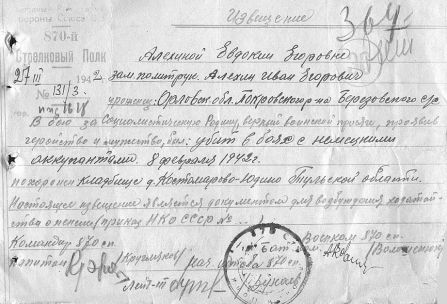 Извещение
обороны Союза ССР
870-й
Стрелковый Полк
27 III 1942
№ 131/3.
Алехиной Евдокии Егоровне
зам. политрук. Алехин Иван Егорович
уроженец: Орловск. обл. Покровского р-на Березовского с/с
В бою за Социалистическую Родину, верный воинской присяге, проявив
геройство и мужество, был: убит в боях с немецкими
оккупантами. 8 февраля 1942 г.
похоронен кладбище д. Костомарово-Юдино Тульской области.
Настоящее извещение является документом для возбуждения ходатай-
ства о пенсии (приказ НКО СССР № ..)
Командир 870 сп. Военком 870 сп.
Капитан
нач. штаба 870 сп
Лейт-т